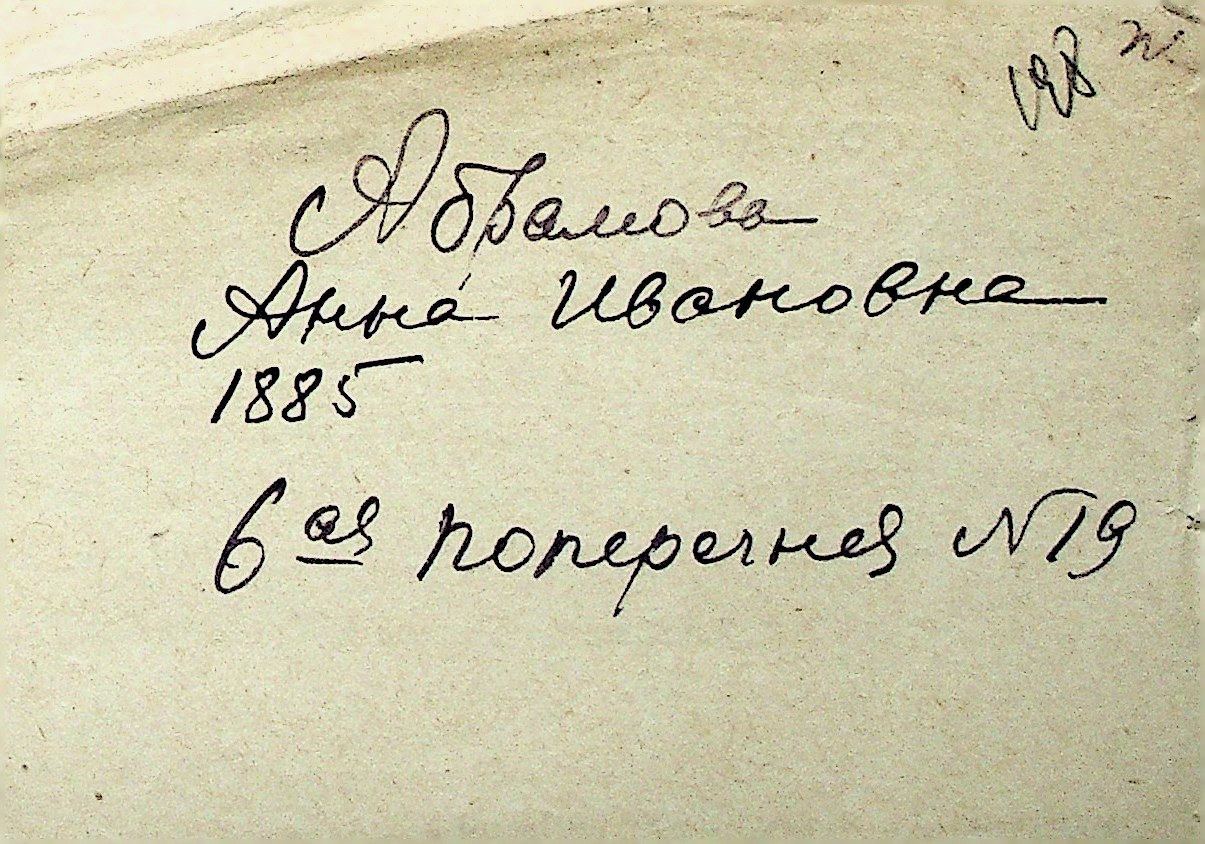 198
Абрамова
Анна Ивановна
1885
6ая поперечная №19